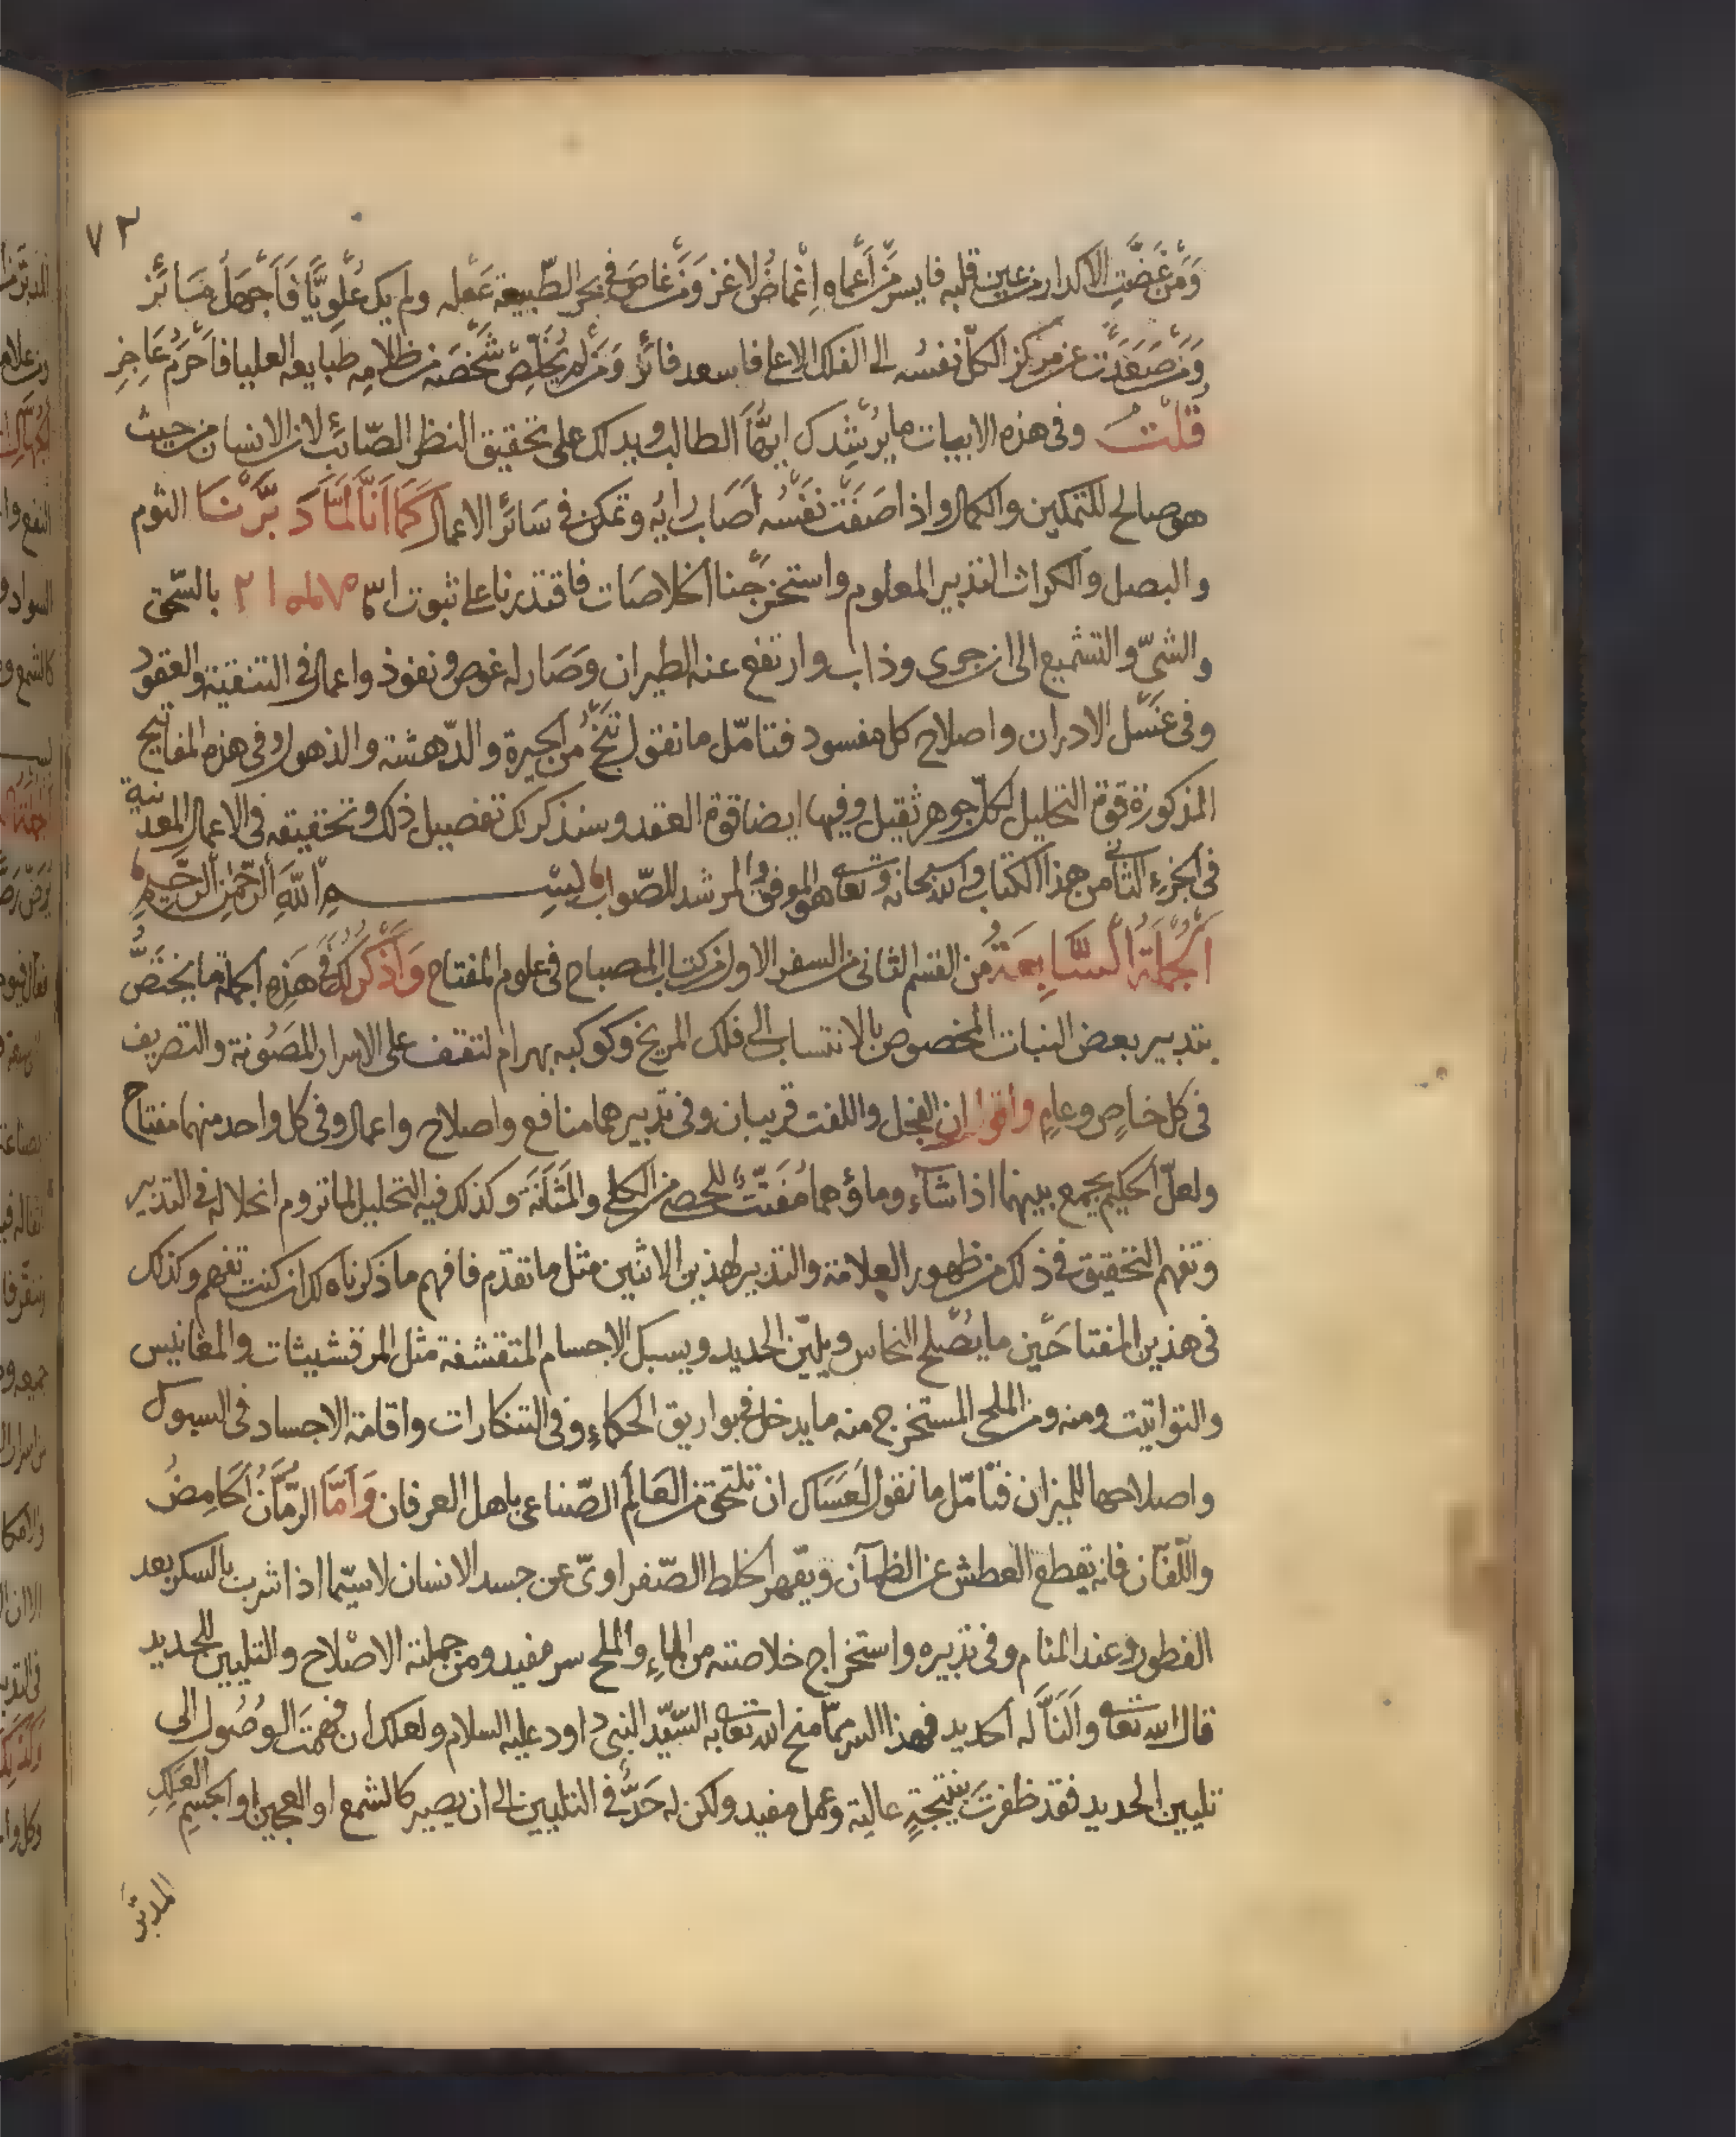 ٧٣
وَمَن غَضَّتِ الاكدار من عين قلبه فايسر من أعماه إغماض لاغز وَمَن غاصَ في بحر الطبيعة عقله ولم يك علويًّا فأجهل سائر
وَمَن صعدت عن مركز الكلّ نفسُه الى الفلك الاعلى فاسعد فائز وَمَن لم يُخلّص شخصَه من ظلامه طبايعه العليا فأحرم عاجز
قلتُ وفى هذه الابيات ما يرشدك ايها الطالب ويدلك على تحقيق النظر الصّائب لان الانسان من حيث
هو صالح للتمكين والكمال واذا صفت نفسُه أصاب رايه وتمكن فى سائر الاعمال كَمَا أنَّا لمَّا دبَّرْنَا الثوم
والبصل والكراث التدبير المعلوم واستخرجنا الخلاصات فاقتدرنا على ثبوت بالسّحق
والشىّ والتشميع الى ان جرى وذاب وارتفع عنه الطيران وصَار له غوص ونفوذ واعمال فى التنقية والعقود
وفى غسل الادران واصلاح كل مفسود فتامّل ما نقول تنجُ من الحيرة والدّهشة والذهول وفى هذه المفاتيح
المذكورة قوة التحليل لكلّ جوهر ثقيل وفيها ايضا قوة العقد وسنذكر لك تفصيل ذلك وتحقيقه فى الاعمال المعدنية
فى الجزء الثانى من هذا الكتاب والله سبحانه وتعالى هو الموفق المرشد للصّواب بسم الله الرّحمن الرّحيم
الجملة السّابعة من القسم الثانى من السفر الاول من كتاب المصباح فى علوم المفتاح وَأذكر لك فى هَذِه الجملة ما يختصُّ
بتدبير بعض النبات المخصوص بالانتساب الى فلك المريخ وكوكبه بهرام لتقف على الاسرار المصونة والتصريف
فى كل خاصٍ وعامٍ واقول ان الفجل واللفت قريبان وفى تدبيرهما منافع واصلاح واعمال وفى كل واحد منهما مفتاح
ولعلّ الحكيم يجمع بينهما اذا شآء وماؤهما مُفتّتٌ للحصى من الكلى والمثَانَة وكذلك فيه التحليل لما تروم انحلاله فى التدبير
وتفهم التحقيق فى ذلك من ظهور العلامة والتدبير لهذين الاثنين مثل ما تقدّم فافهم ما ذكرناه لك ان كنت تفهم وكذلك
فى هذين المفتاحَين ما يُصلح النحاس ويليّن الحديد ويسبك الاجسام المتقشفة مثل المرقشيثات والمغانيس
والتواتيت ومنه ومن الملح المستخرج منه ما يدخل فى بواريق الحكماء وفى التنكارات واقامة الاجساد فى السبوك
واصلاحها للميزان فتامّل ما نقول لعساك ان تلتحق من العَالَم الصّناعى باهل العرفان وَأمَّا الرمّانُ الحَامِضُ
واللّفّان فانه يقطع العطش عن الظمآن ويقهر الخلط الصّفراوىّ عن جسد الانسان لاسيّما اذا شرب بالسكر بعد
الفطور وعند المنام وفى تدبيره واستخراج خلاصته من الماءِ والملح سر مفيد ومن جملته الاصْلاح والتليين للحديد
قال الله تعالى وألنَّا له الحديد فهذا السر ممّا منح الله تعالى به السّيّد النبىّ داود عليه السلام ولعلك ان فهمت الوصُول الى
تليين الحديد فقد ظفرت بنتيجةٍ عالية وعمل مفيد ولكن له حَدٌّ فى التليين الى ان يصير كالشمع او العجين او الجسم العلك
المدبّر